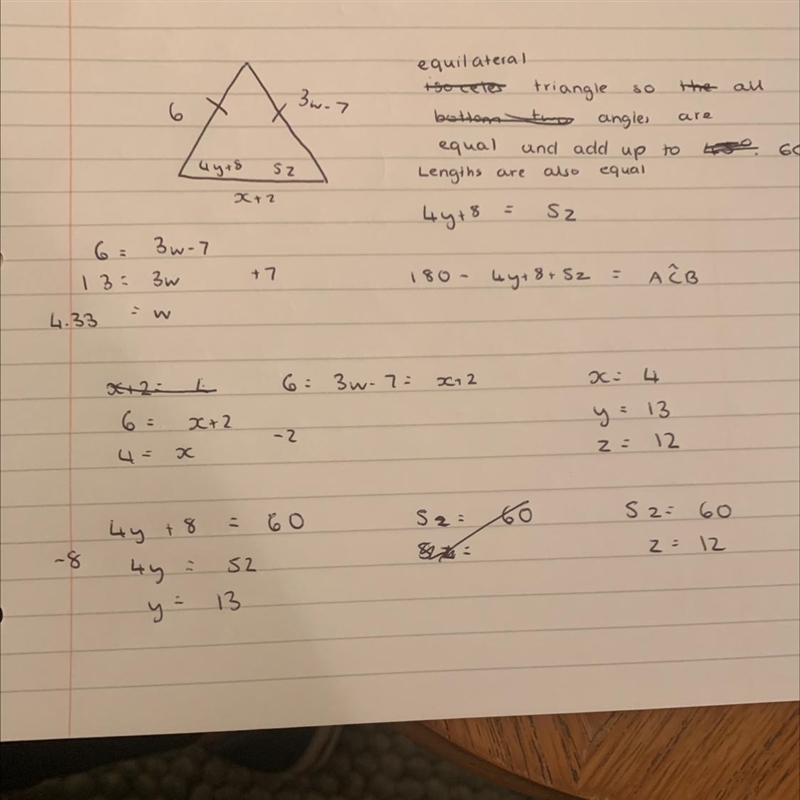 6
3w-7
4y+8 5z
x+2
equilateral
isoceles triangle so the all
bottom two angles are
equal and add up to 60
Lengths are also equal
4y+8 = 5z
180 - 4y+8+5z = AĈB
6 = 3w-7
13 = 3w +7
4.33 = w
x+2 =
6 = x+2 -2
4 = x
6 = 3w-7 = x+2
x = 4
y = 13
z = 12
4y + 8 = 60
-8 4y = 52
y = 13
5z = 60
5z = 60
z = 12